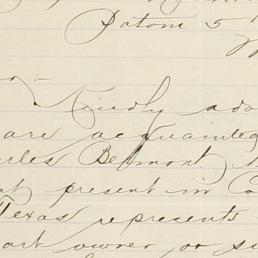 Kindly adv
are acquainted
rles Belmont
at present in Co
Texas represents
art owner or su